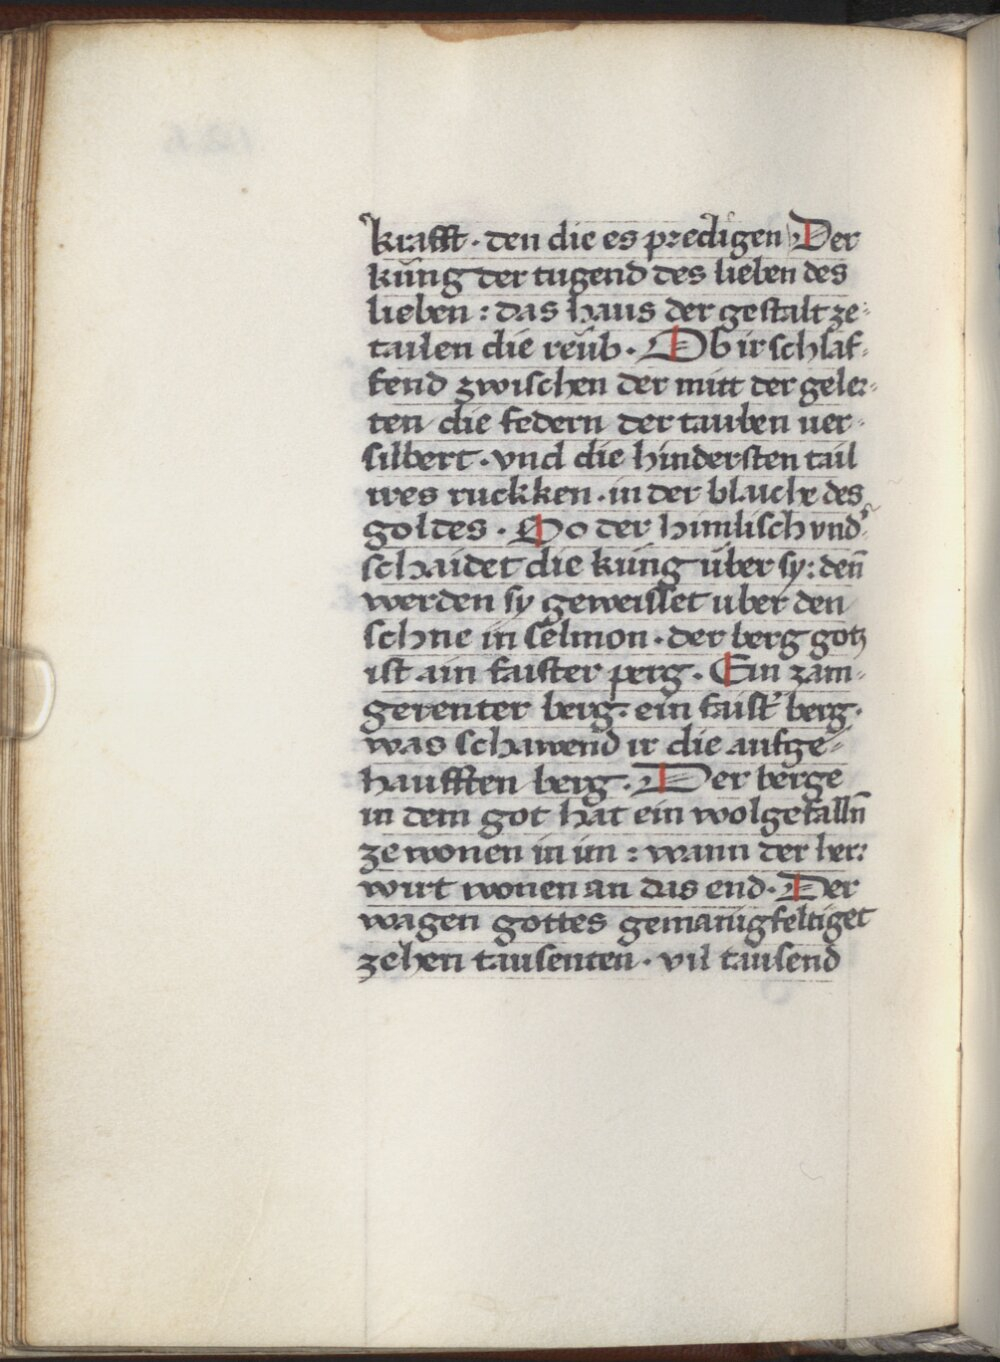 krafft · den die es predigen Der
küng der tugend des lieben des
lieben : das haus der gestalt ze⸗
tailen die reüb · Ob ir schlaf⸗
fend zwischen der mitt der geler⸗
ten die federn der tauben uer⸗
silbert · vnd die hindersten tail
wes ruckken · in der blaiche des
goldes · So der himlisch vnd⸗
schaidet die küng über sy : den̄
werden sy geweisset uber den
schne in selmon · der berg gotz
ist ain faister perg · Ein zam⸗
gerenter berg · ein faist̕ berg ·
was schawend ir die aufge⸗
haufften berg · Der berge
in dem got hat ein wolgefalln̄
ze wonen in im : wann der her:
wirt wonen an das end · Der
wagen gottes gemanigfeltiget
zehen tausenten · vil tausend